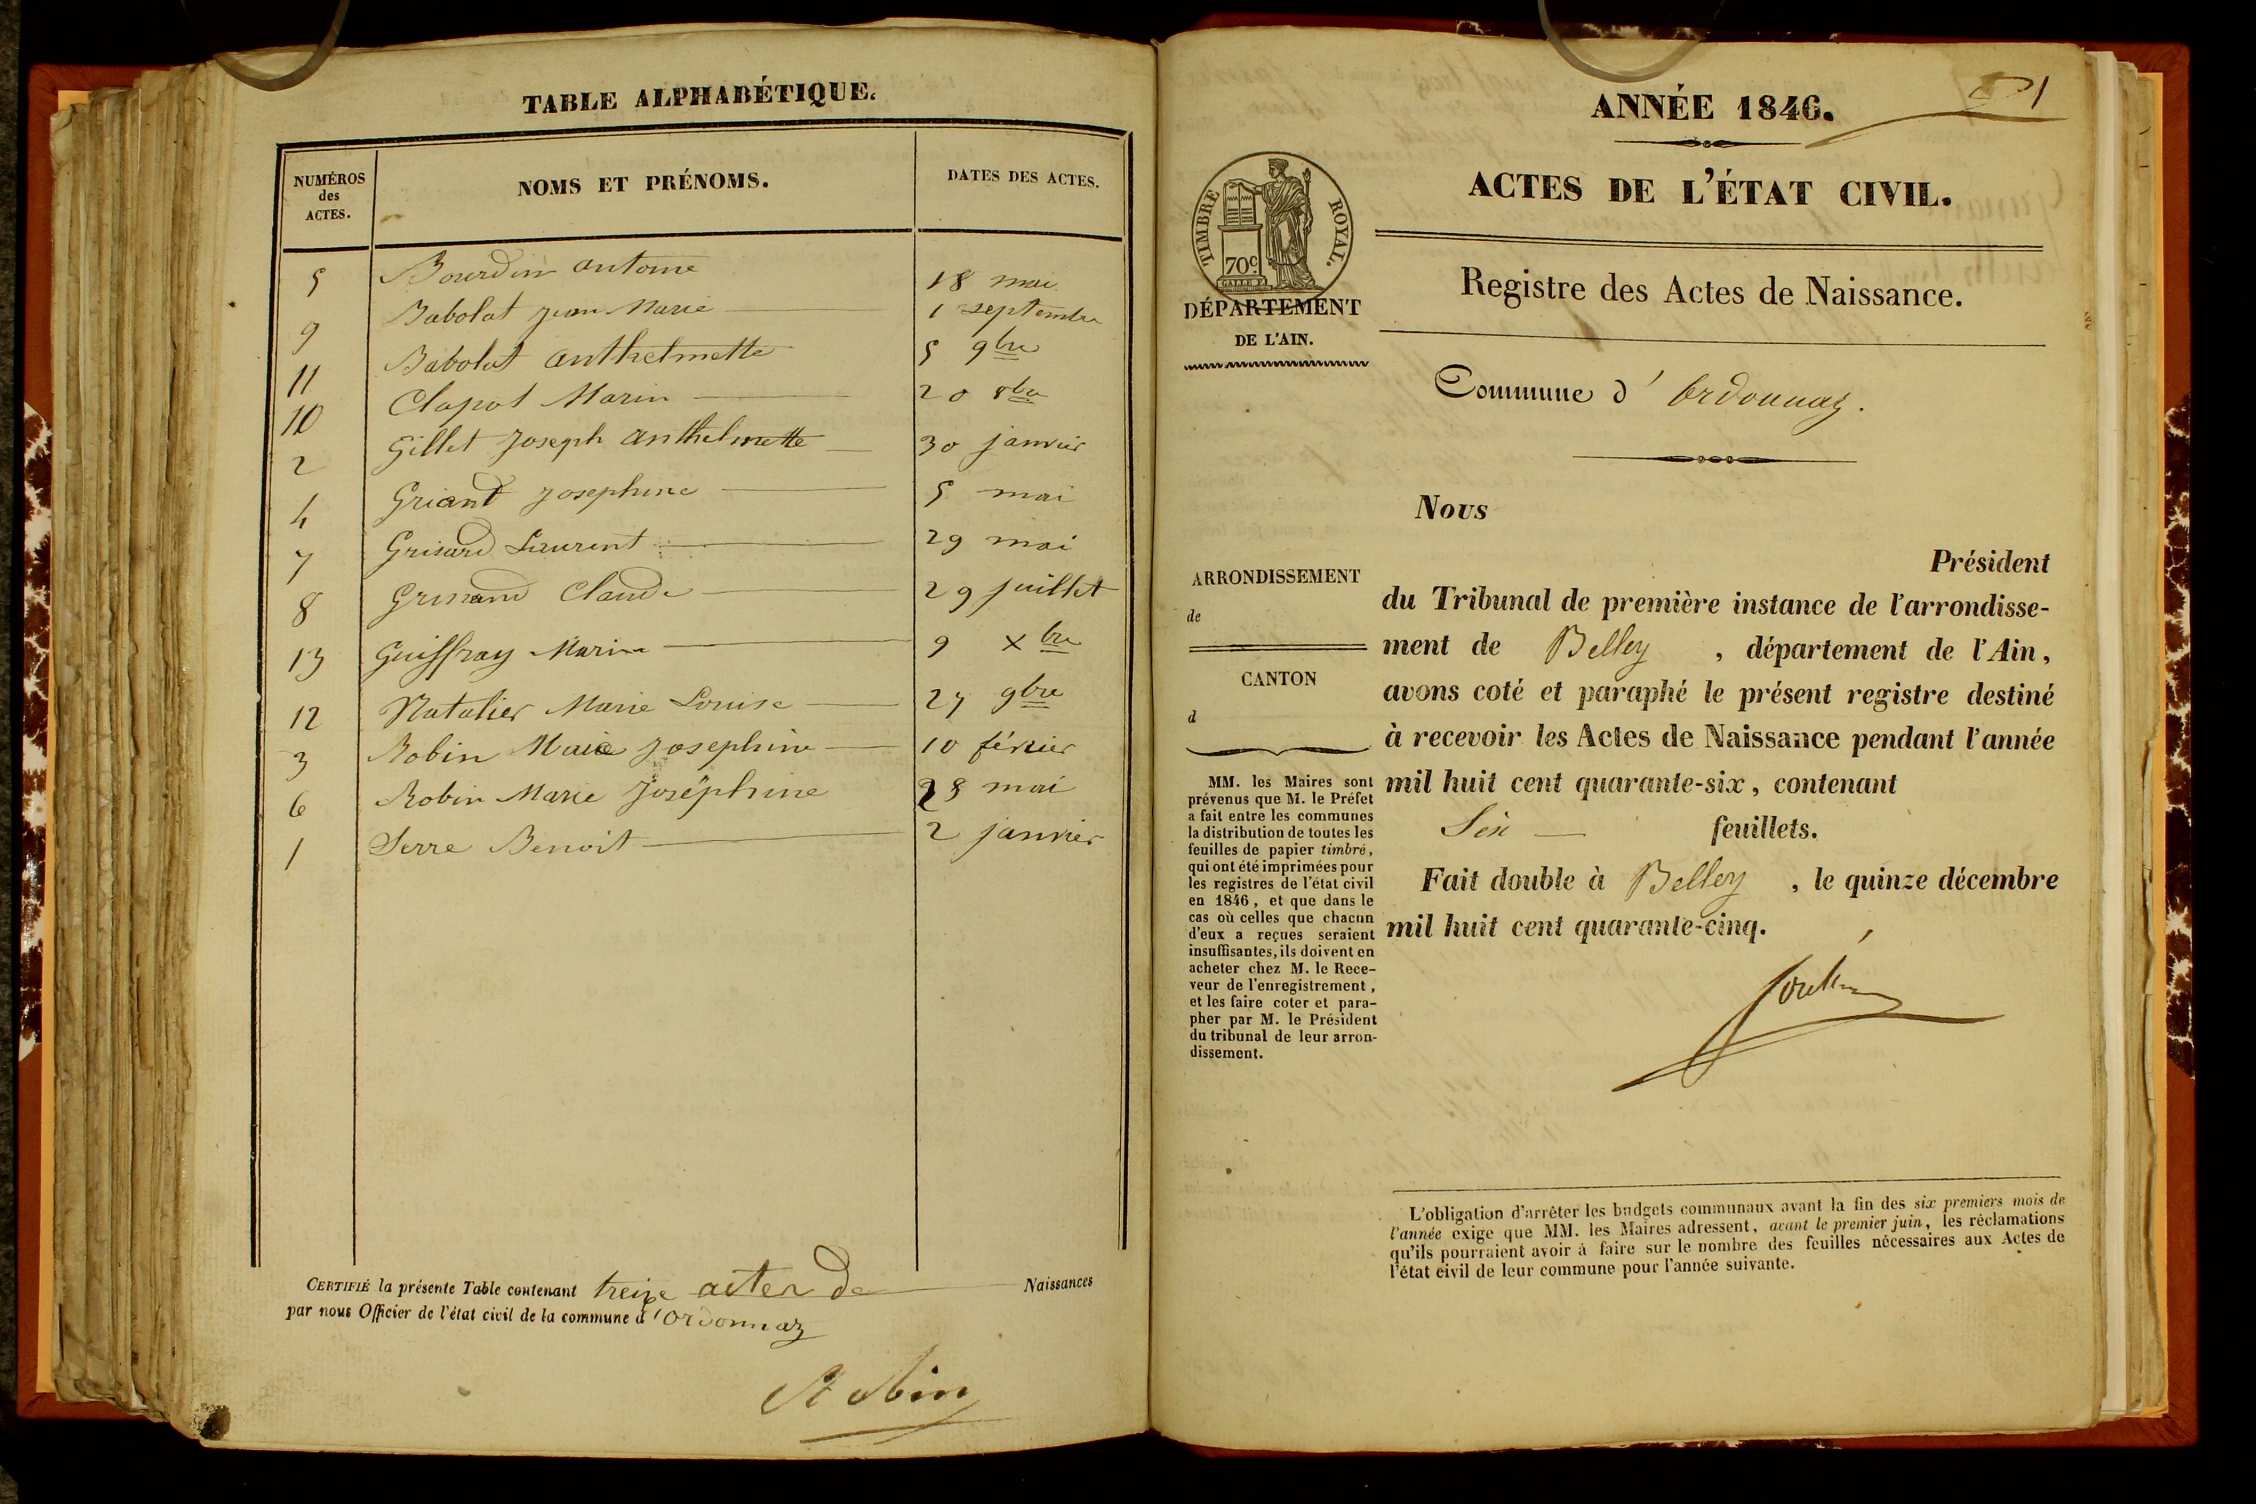 TABLE ALPHABÉTIQUE.
NUMÉROS
des
ACTES.
NOMS ET PRÉNOMS.
DATES DES ACTES.
5 Bourdin antoine 18 mai
9 Babolat jean Marie 1 septembre
11 Babolat anthelmette 5 9bre
10 Clapot Marin 20 8bre
2 Gillet Joseph anthelmette 30 janvier
4 Griand Josephine 5 mai
7 Grisard Laurent 29 mai
8 Claude 29 juillet
13 Guiffray Marie 9 Xbre
12 Natalier Marie Louise 27 9bre
3 Robin Marie Josephine 10 février
6 Robin Marie Joséphine 28 mai
1 Serre Benoit 2 janvier
CERTIFIÉ la présente Table contenant treize actes de Naissances
par nous Officier de l'état civil de la commune d'Ordonnaz
Robin
1
ANNÉE 1846.
ACTES DE L'ÉTAT CIVIL.
TIMBRE ROYAL.
70c.
DÉPARTEMENT
DE L'AIN.
Registre des Actes de Naissance.
Commune d'Ordonnaz.
Nous
Président
du Tribunal de première instance de l'arrondisse-
ment de Belley, département de l'Ain,
avons coté et paraphé le présent registre destiné
à recevoir les Actes de Naissance pendant l'année
mil huit cent quarante-six, contenant
Six feuillets.
Fait double à Belley, le quinze décembre
mil huit cent quarante-cinq.
ARRONDISSEMENT
de
CANTON
d
MM. les Maires sont
prévenus que M. le Préfet
a fait entre les communes
la distribution de toutes les
feuilles de papier timbré,
qui ont été imprimées pour
les registres de l'état civil
en 1846, et que dans le
cas où celles que chacun
d'eux a reçues seraient
insuffisantes, ils doivent en
acheter chez M. le Rece-
veur de l'enregistrement,
et les faire coter et para-
pher par M. le Président
du tribunal de leur arron-
dissement.
L'obligation d'arrêter les budgets communaux avant la fin des six premiers mois de
l'année exige que MM. les Maires adressent, avant le premier juin, les réclamations
qu'ils pourraient avoir à faire sur le nombre des feuilles nécessaires aux Actes de
l'état civil de leur commune pour l'année suivante.